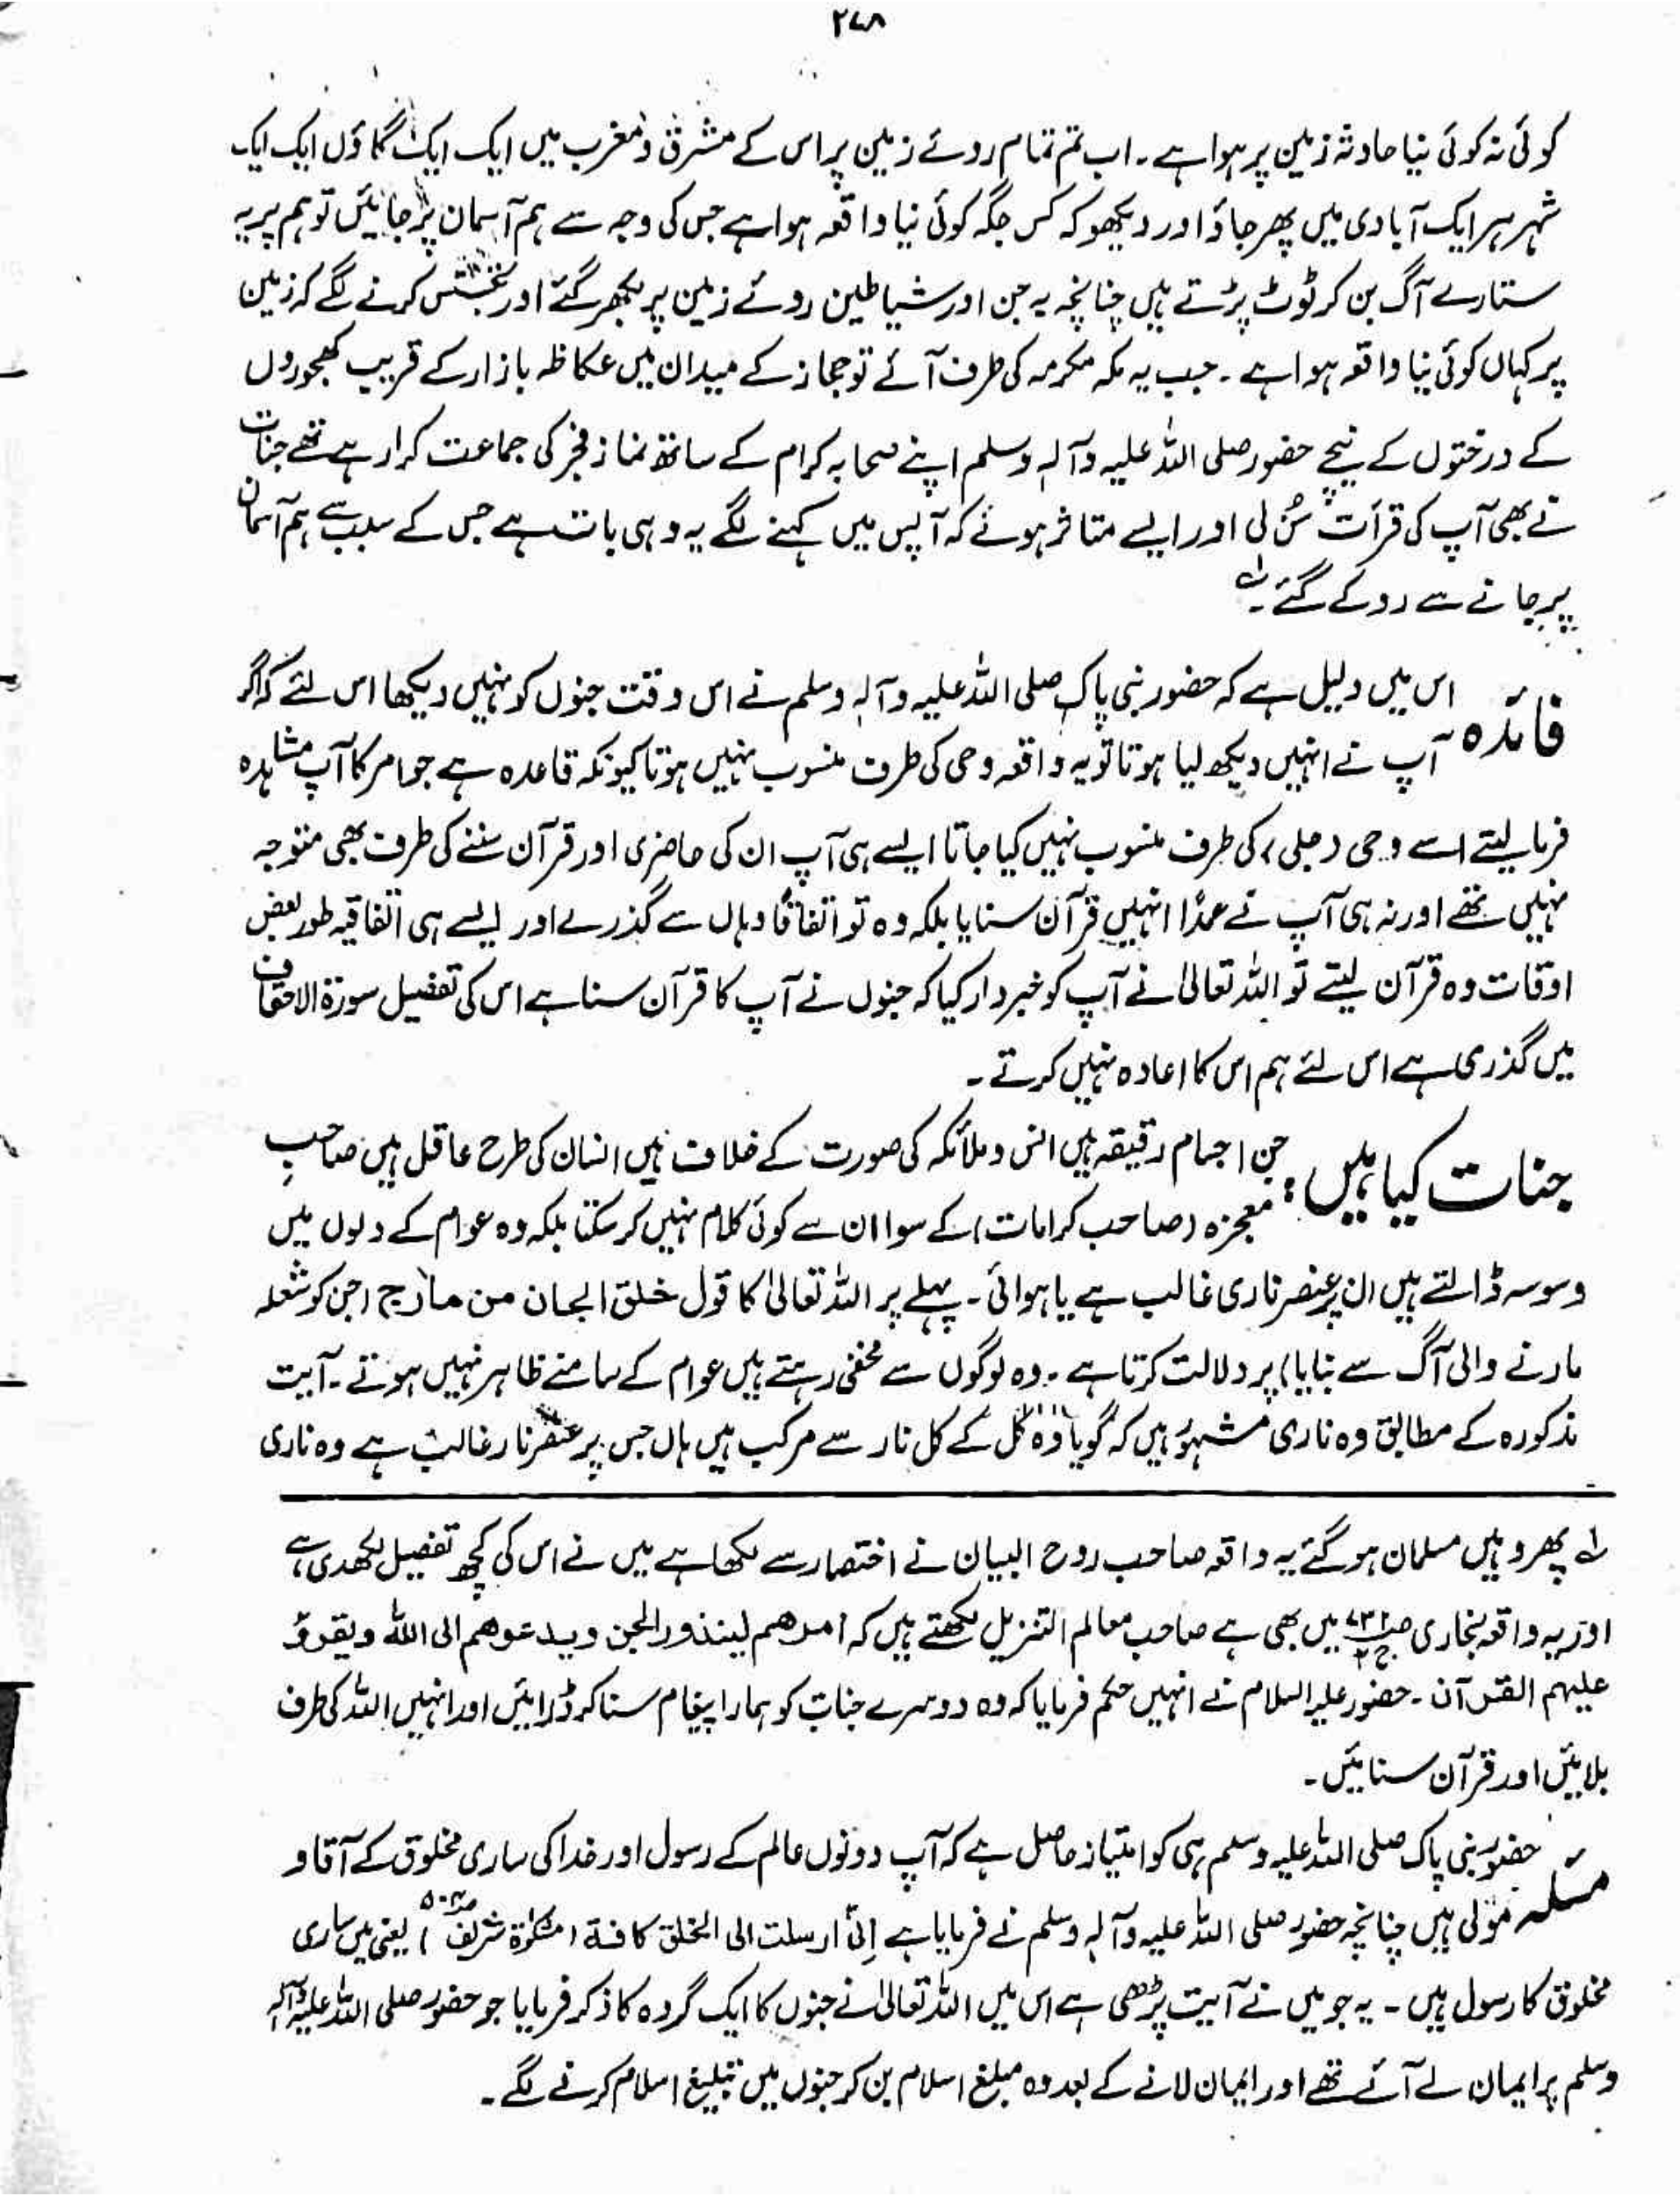 ۲۷۸
کوئی نہ کوئی نیا حادثہ زمین پر ہوا ہے۔ اب تم تمام روئے زمین پر اس کے مشرق و مغرب میں ایک ایک گاؤں ایک ایک
شہر ہر ایک آبادی میں پھر جاؤ اور دیکھو کہ کس جگہ کوئی نیا واقعہ ہوا ہے جس کی وجہ سے ہم آسمان پر جائیں تو ہم پر یہ
ستارے آگ بن کر ٹوٹ پڑتے ہیں چنانچہ یہ جن اور شیاطین روئے زمین پر بکھر گئے اور تجسس کرنے لگے کہ زمین
پر کہاں کوئی نیا واقعہ ہوا ہے۔ جب یہ مکہ مکرمہ کی طرف آئے تو حجاز کے میدان میں عکاظ بازار کے قریب کھجوروں
کے درختوں کے نیچے حضور صلی اللہ علیہ وآلہ وسلم اپنے صحابہ کرام کے ساتھ نماز فجر کی جماعت کرا رہے تھے جنات
نے بھی آپ کی قرأت سُن لی اور ایسے متاثر ہوئے کہ آپس میں کہنے لگے یہ وہی بات ہے جس کے سبب سے ہم آسمان
پر جانے سے روکے گئے۔ لہ
فائدہ اس میں دلیل ہے کہ حضور نبی پاک صلی اللہ علیہ وآلہ وسلم نے اس وقت جنوں کو نہیں دیکھا اس لئے کہ اگر
آپ نے انہیں دیکھ لیا ہوتا تو یہ واقعہ وحی کی طرف منسوب نہیں ہوتا کیونکہ قاعدہ ہے جو امر کا آپ مشاہدہ
فرما لیتے اسے وحی (جلی) کی طرف منسوب نہیں کیا جاتا ایسے ہی آپ ان کی حاضری اور قرآن سننے کی طرف بھی متوجہ
نہیں تھے اور نہ ہی آپ نے عمدًا انہیں قرآن سنایا بلکہ وہ تو اتفاقًا وہاں سے گذرے اور ایسے ہی اتفاقیہ طور بعض
اوقات وہ قرآن لیتے تو اللہ تعالیٰ نے آپ کو خبردار کیا کہ جنوں نے آپ کا قرآن سنا ہے اس کی تفصیل سورۃ الاحقاف
میں گذری ہے اس لئے ہم اس کا اعادہ نہیں کرتے۔
جنات کیا ہیں: جن اجسام رقیقہ ہیں انس و ملائکہ کی صورت کے خلاف ہیں انسان کی طرح عاقل ہیں صاحبِ
معجزہ (صاحب کرامات) کے سوا ان سے کوئی کلام نہیں کر سکتا بلکہ وہ عوام کے دلوں میں
وسوسہ ڈالتے ہیں ان پر عنصر ناری غالب ہے یا ہوائی۔ پہلے پر اللہ تعالیٰ کا قول خلق الجان من مارج (جن کو شعلہ
مارنے والی آگ سے بنایا) پر دلالت کرتا ہے۔ وہ لوگوں سے مخفی رہتے ہیں عوام کے سامنے ظاہر نہیں ہوتے۔ آیت
مذکورہ کے مطابق وہ ناری مشہور ہیں کہ گویا وہ کل کے کل نار سے مرکب ہیں ہاں جس پر عنصر نار غالب ہے وہ ناری
لہ پھر وہیں مسلمان ہو گئے یہ واقعہ صاحب روح البیان نے اختصار سے لکھا ہے میں نے اس کی کچھ تفصیل لکھدی ہے
اور یہ واقعہ بخاری ج۲ میں بھی ہے صاحب معالم التنزیل لکھتے ہیں کہ امرھم لینذروا لجن ویدعوھم الی اللہ ویقرؤ
علیہم القرآن۔ حضور علیہ السلام نے انہیں حکم فرمایا کہ وہ دوسرے جنات کو ہمارا پیغام سنا کر ڈرائیں اور انہیں اللہ کی طرف
بلائیں اور قرآن سنائیں۔
مسئلہ حضور نبی پاک صلی اللہ علیہ وسلم ہی کو امتیاز حاصل ہے کہ آپ دونوں عالم کے رسول اور خدا کی ساری مخلوق کے آقا و
مولیٰ ہیں چنانچہ حضور صلی اللہ علیہ وآلہ وسلم نے فرمایا ہے اِنّی ارسلت الی الخلق کافۃ (مشکوٰۃ شریف) یعنی میں ساری
مخلوق کا رسول ہیں۔ یہ جو میں نے آیت پڑھی ہے اس میں اللہ تعالیٰ نے جنوں کا ایک گروہ کا ذکر فرمایا جو حضور صلی اللہ علیہ وآلہ
وسلم پر ایمان لے آئے تھے اور ایمان لانے کے بعد وہ مبلغ اسلام بن کر جنوں میں تبلیغ اسلام کرنے لگے۔